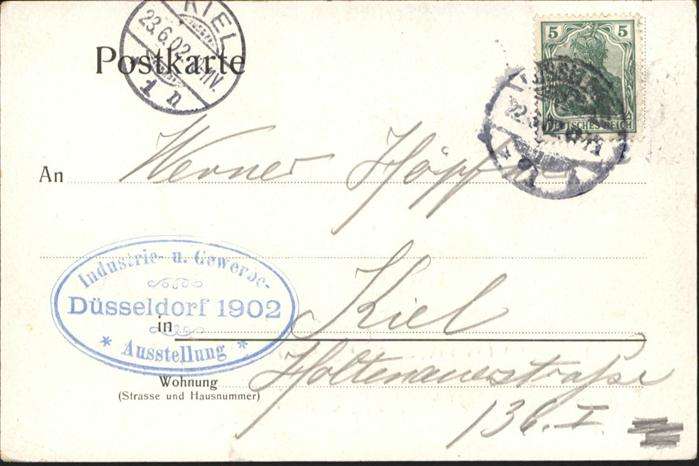 KIEL
23.6.02
1 n
Postkarte
5
DEUTSCHES REICH
An
Werner Höpfner
Industrie- u. Gewerbe-
Düsseldorf 1902
* Ausstellung *
in
Kiel
Wohnung
(Strasse und Hausnummer)
Holtenauerstraße
136. I.